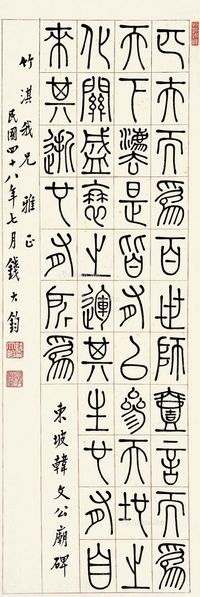 匹夫而爲百世師壹言而爲
天下灋是皆有以參天地之
化關盛衰之運其生也有自
來其逝也有所爲 東坡韓文公廟碑
竹淇我兄 雅正
民國四十八年七月錢大鈞